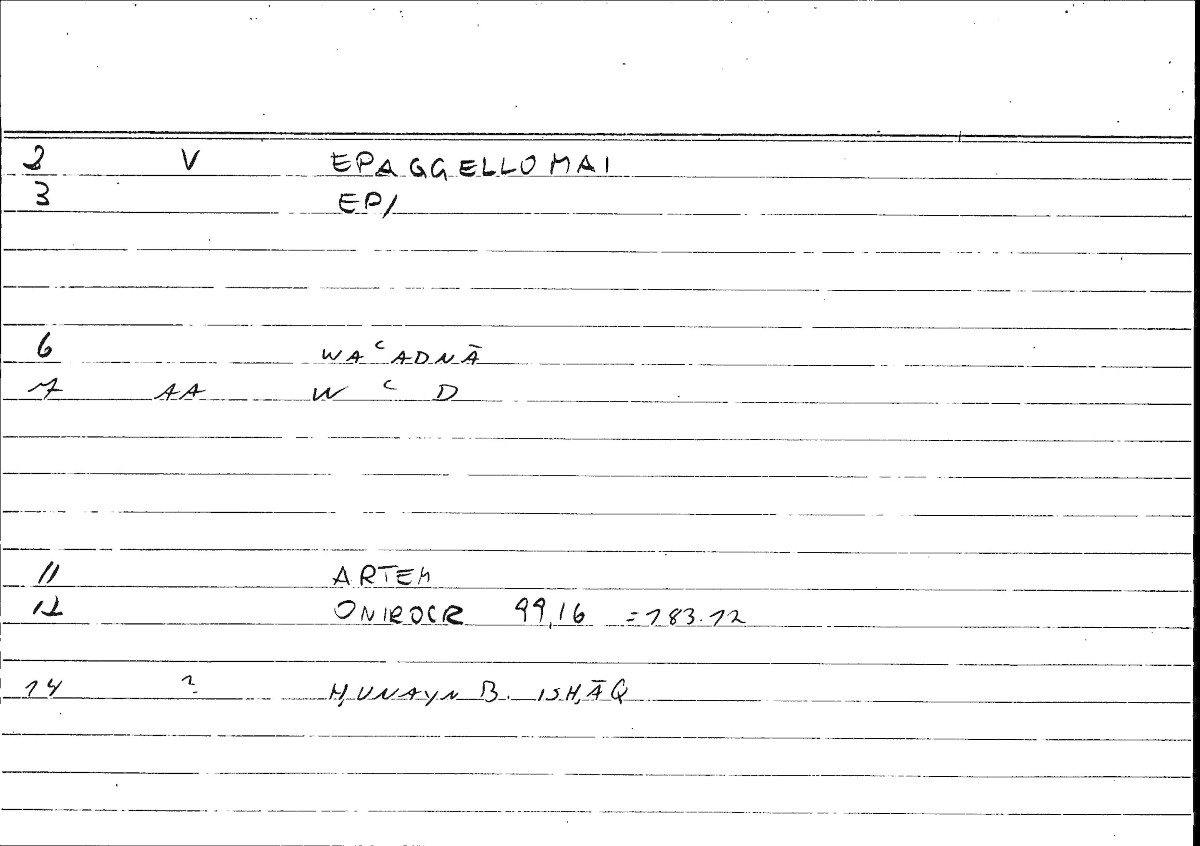 2 V EPAGGELLOMAI
3 EP/
6 WAʿADNĀ
7 AA W ʿ D
11 ARTEM
12 ONIROCR 99,16 =183.12
14 ? ḤUNAYN B. ISḤĀQ